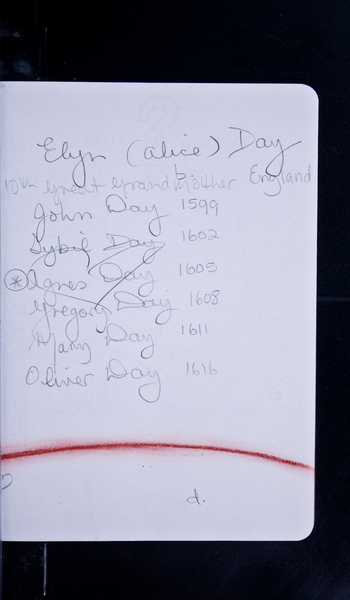 Elyn (Alice) Day
10th Great Grandmother b. England
John Day 1599
Sybil Day 1602
* Agnes Day 1605
Gregory Day 1608
Mary Day 1611
Oliver Day 1616
d.